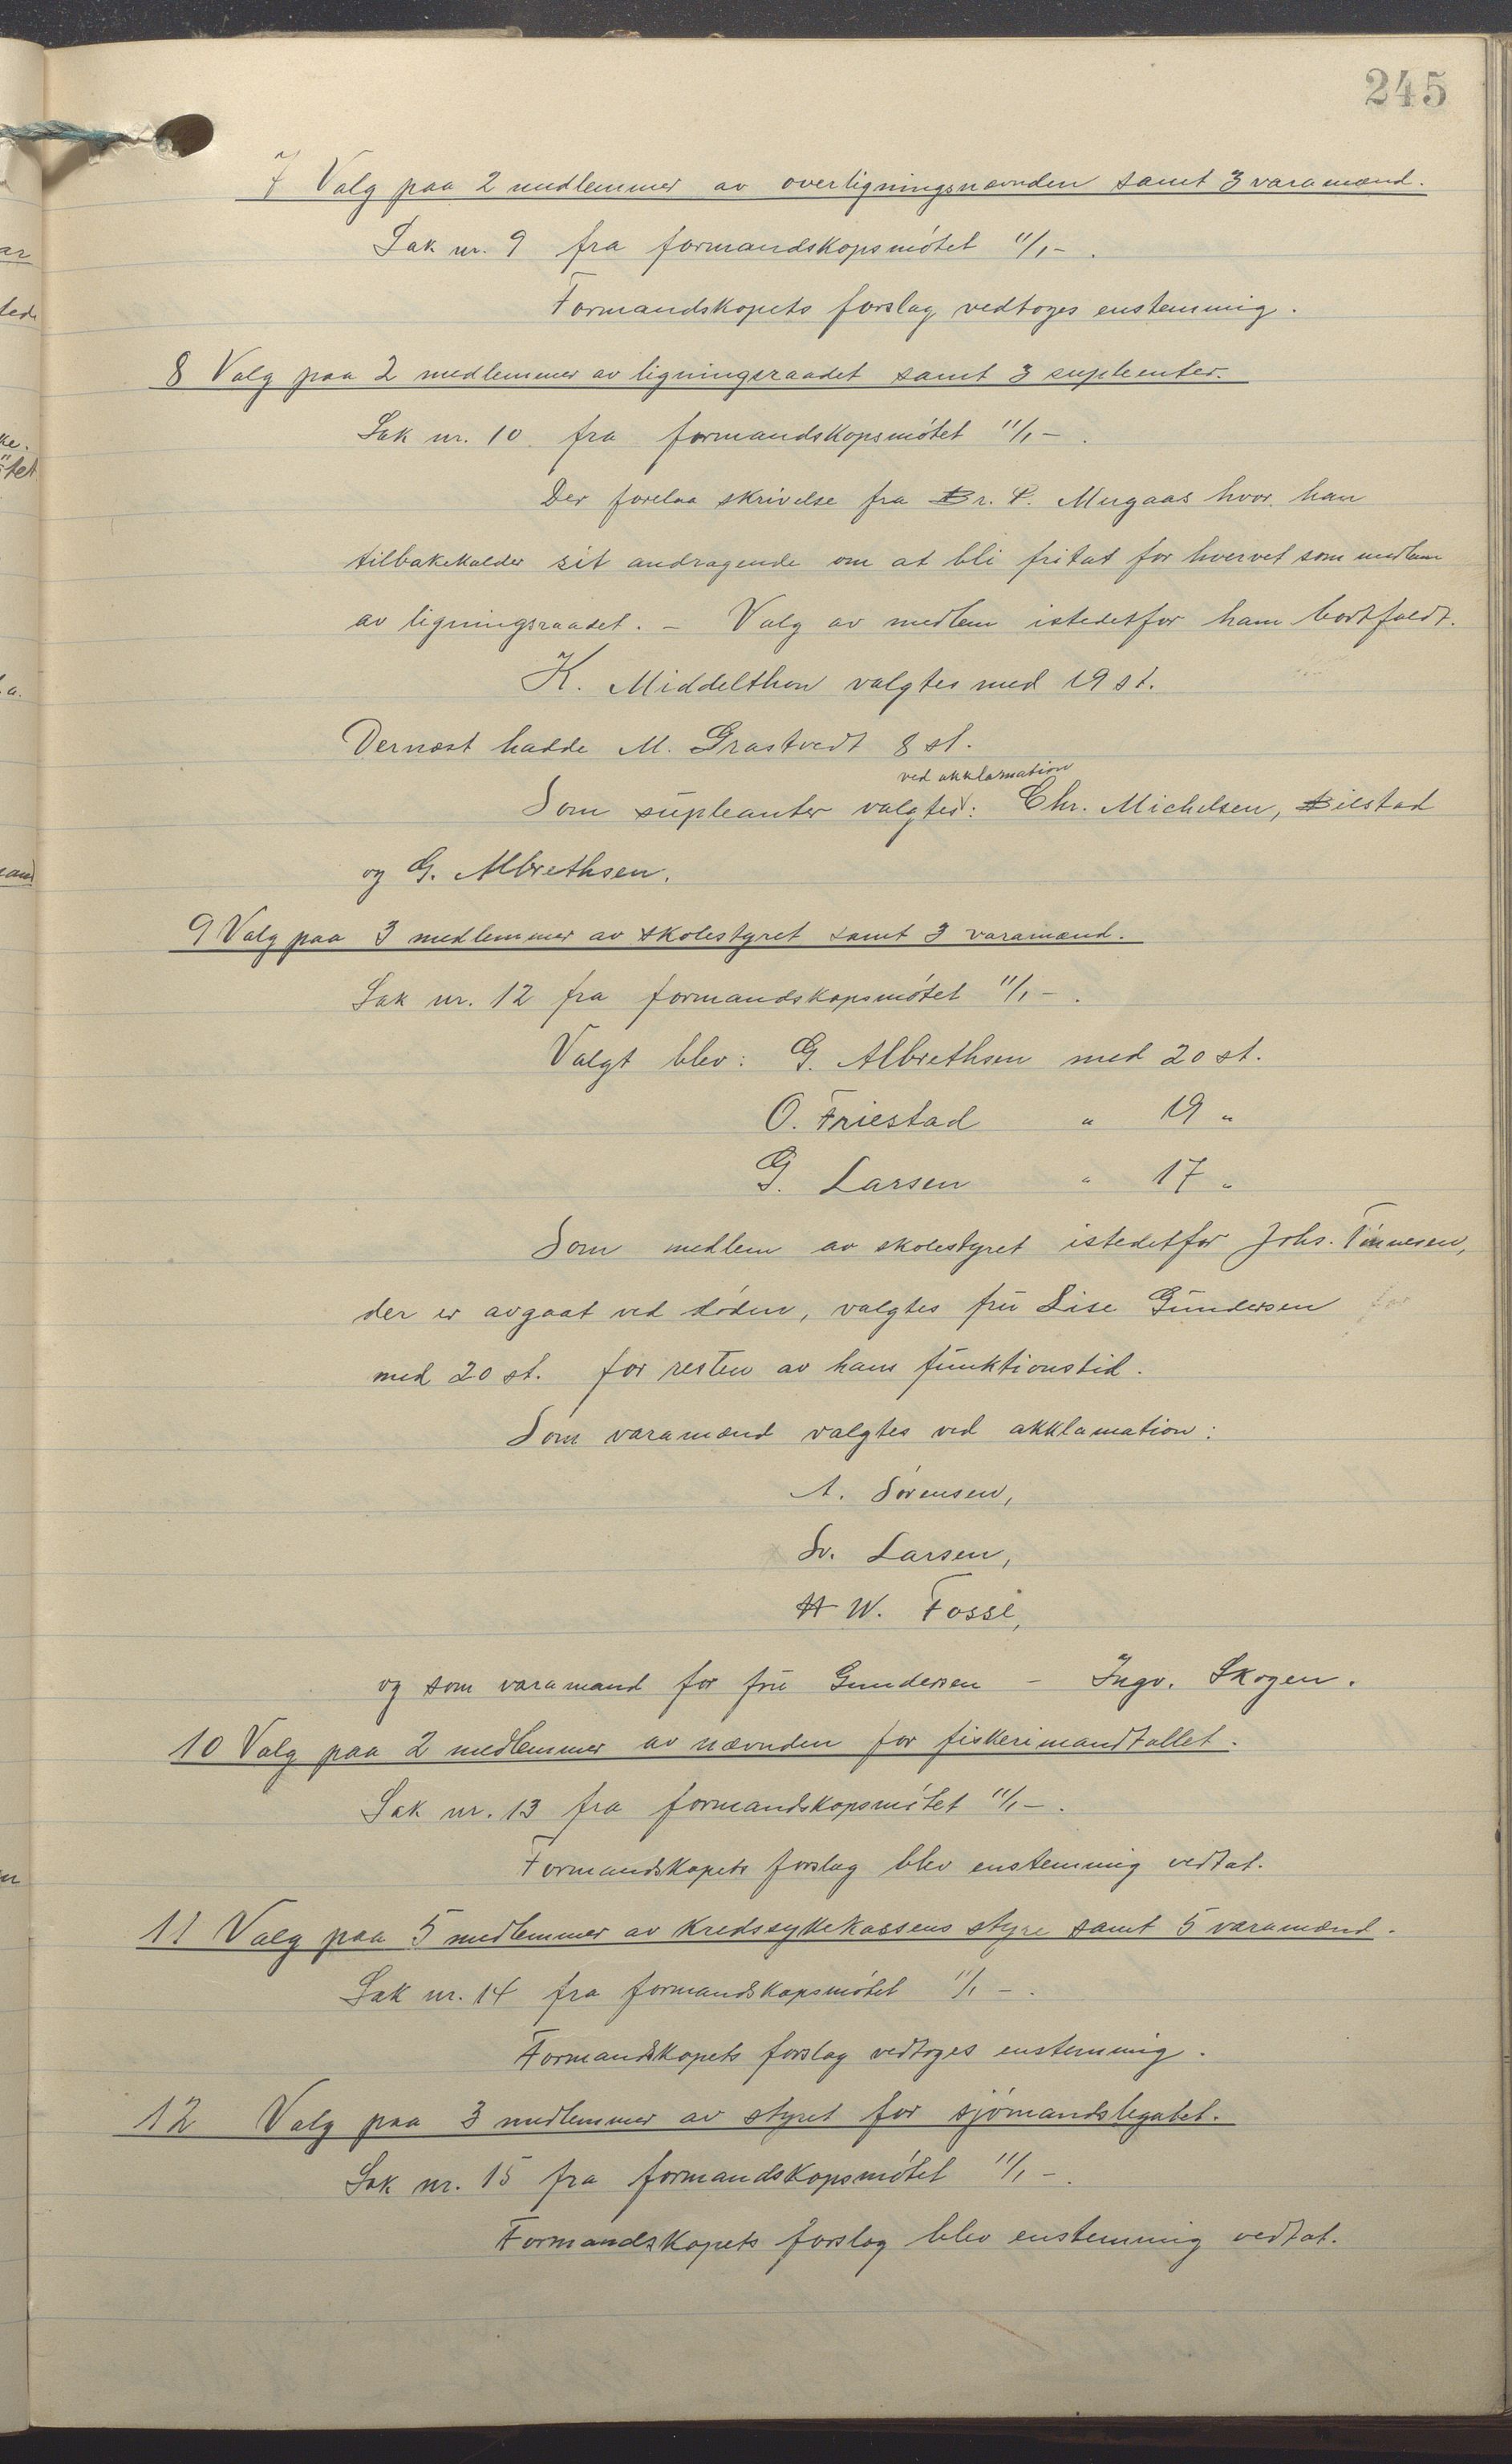 245
7 Valg paa 2 medlemmer av overligningsnævnden samt 3 varamænd.
Sak nr. 9 fra formandskapsmötet 11/1 - .
Formandskapets forslag vedtoges enstemmig.
8 Valg paa 2 medlemmer av ligningsraadet samt 3 supleanter.
Sak nr. 10 fra formandskapsmötet 11/1 - .
Der forelaa skrivelse fra Br. P. Mugaas hvor han
tilbakekalder sit andragende om at bli fritat for hvervet som medlem
av ligningsraadet. - Valg av medlem istedetfor ham bortfaldt.
K. Middelthon valgtes med 19 st.
Dernæst hadde M. Grastvedt 8 st.
ved akklamation
Som supleanter valgtes: Chr. Michelsen, Bilstad
og G. Albrethsen.
9 Valg paa 3 medlemmer av skolestyret samt 3 varamænd.
Sak nr. 12 fra formandskapsmötet 11/1 - .
Valgt blev: G. Albrethsen med 20 st.
O. Friestad " 19 "
G. Larsen " 17 "
Som medlem av skolestyret istedetfor Johs. Tönnesen,
der er avgaat ved döden, valgtes fru Lise Gundersen for
med 20 st. for resten av hans funktionstid.
Som varamænd valgtes ved akklamation:
A. Sörensen,
Sv. Larsen,
W. Fosse,
og som varamand for fru Gundersen - Ingv. Skogen.
10 Valg paa 2 medlemmer av nævnden for fiskerimandtallet.
Sak nr. 13 fra formandskapsmötet 11/1 - .
Formandskapets forslag blev enstemmig vedtat.
11 Valg paa 5 medlemmer av kredssykekassens styre samt 5 varamænd.
Sak nr. 14 fra formandskapsmötet 11/1 - .
Formandskapets forslag vedtoges enstemmig.
12 Valg paa 3 medlemmer av styret for sjömandslegatet.
Sak nr. 15 fra formandskapsmötet 11/1 - .
Formandskapets forslag blev enstemmig vedtat.